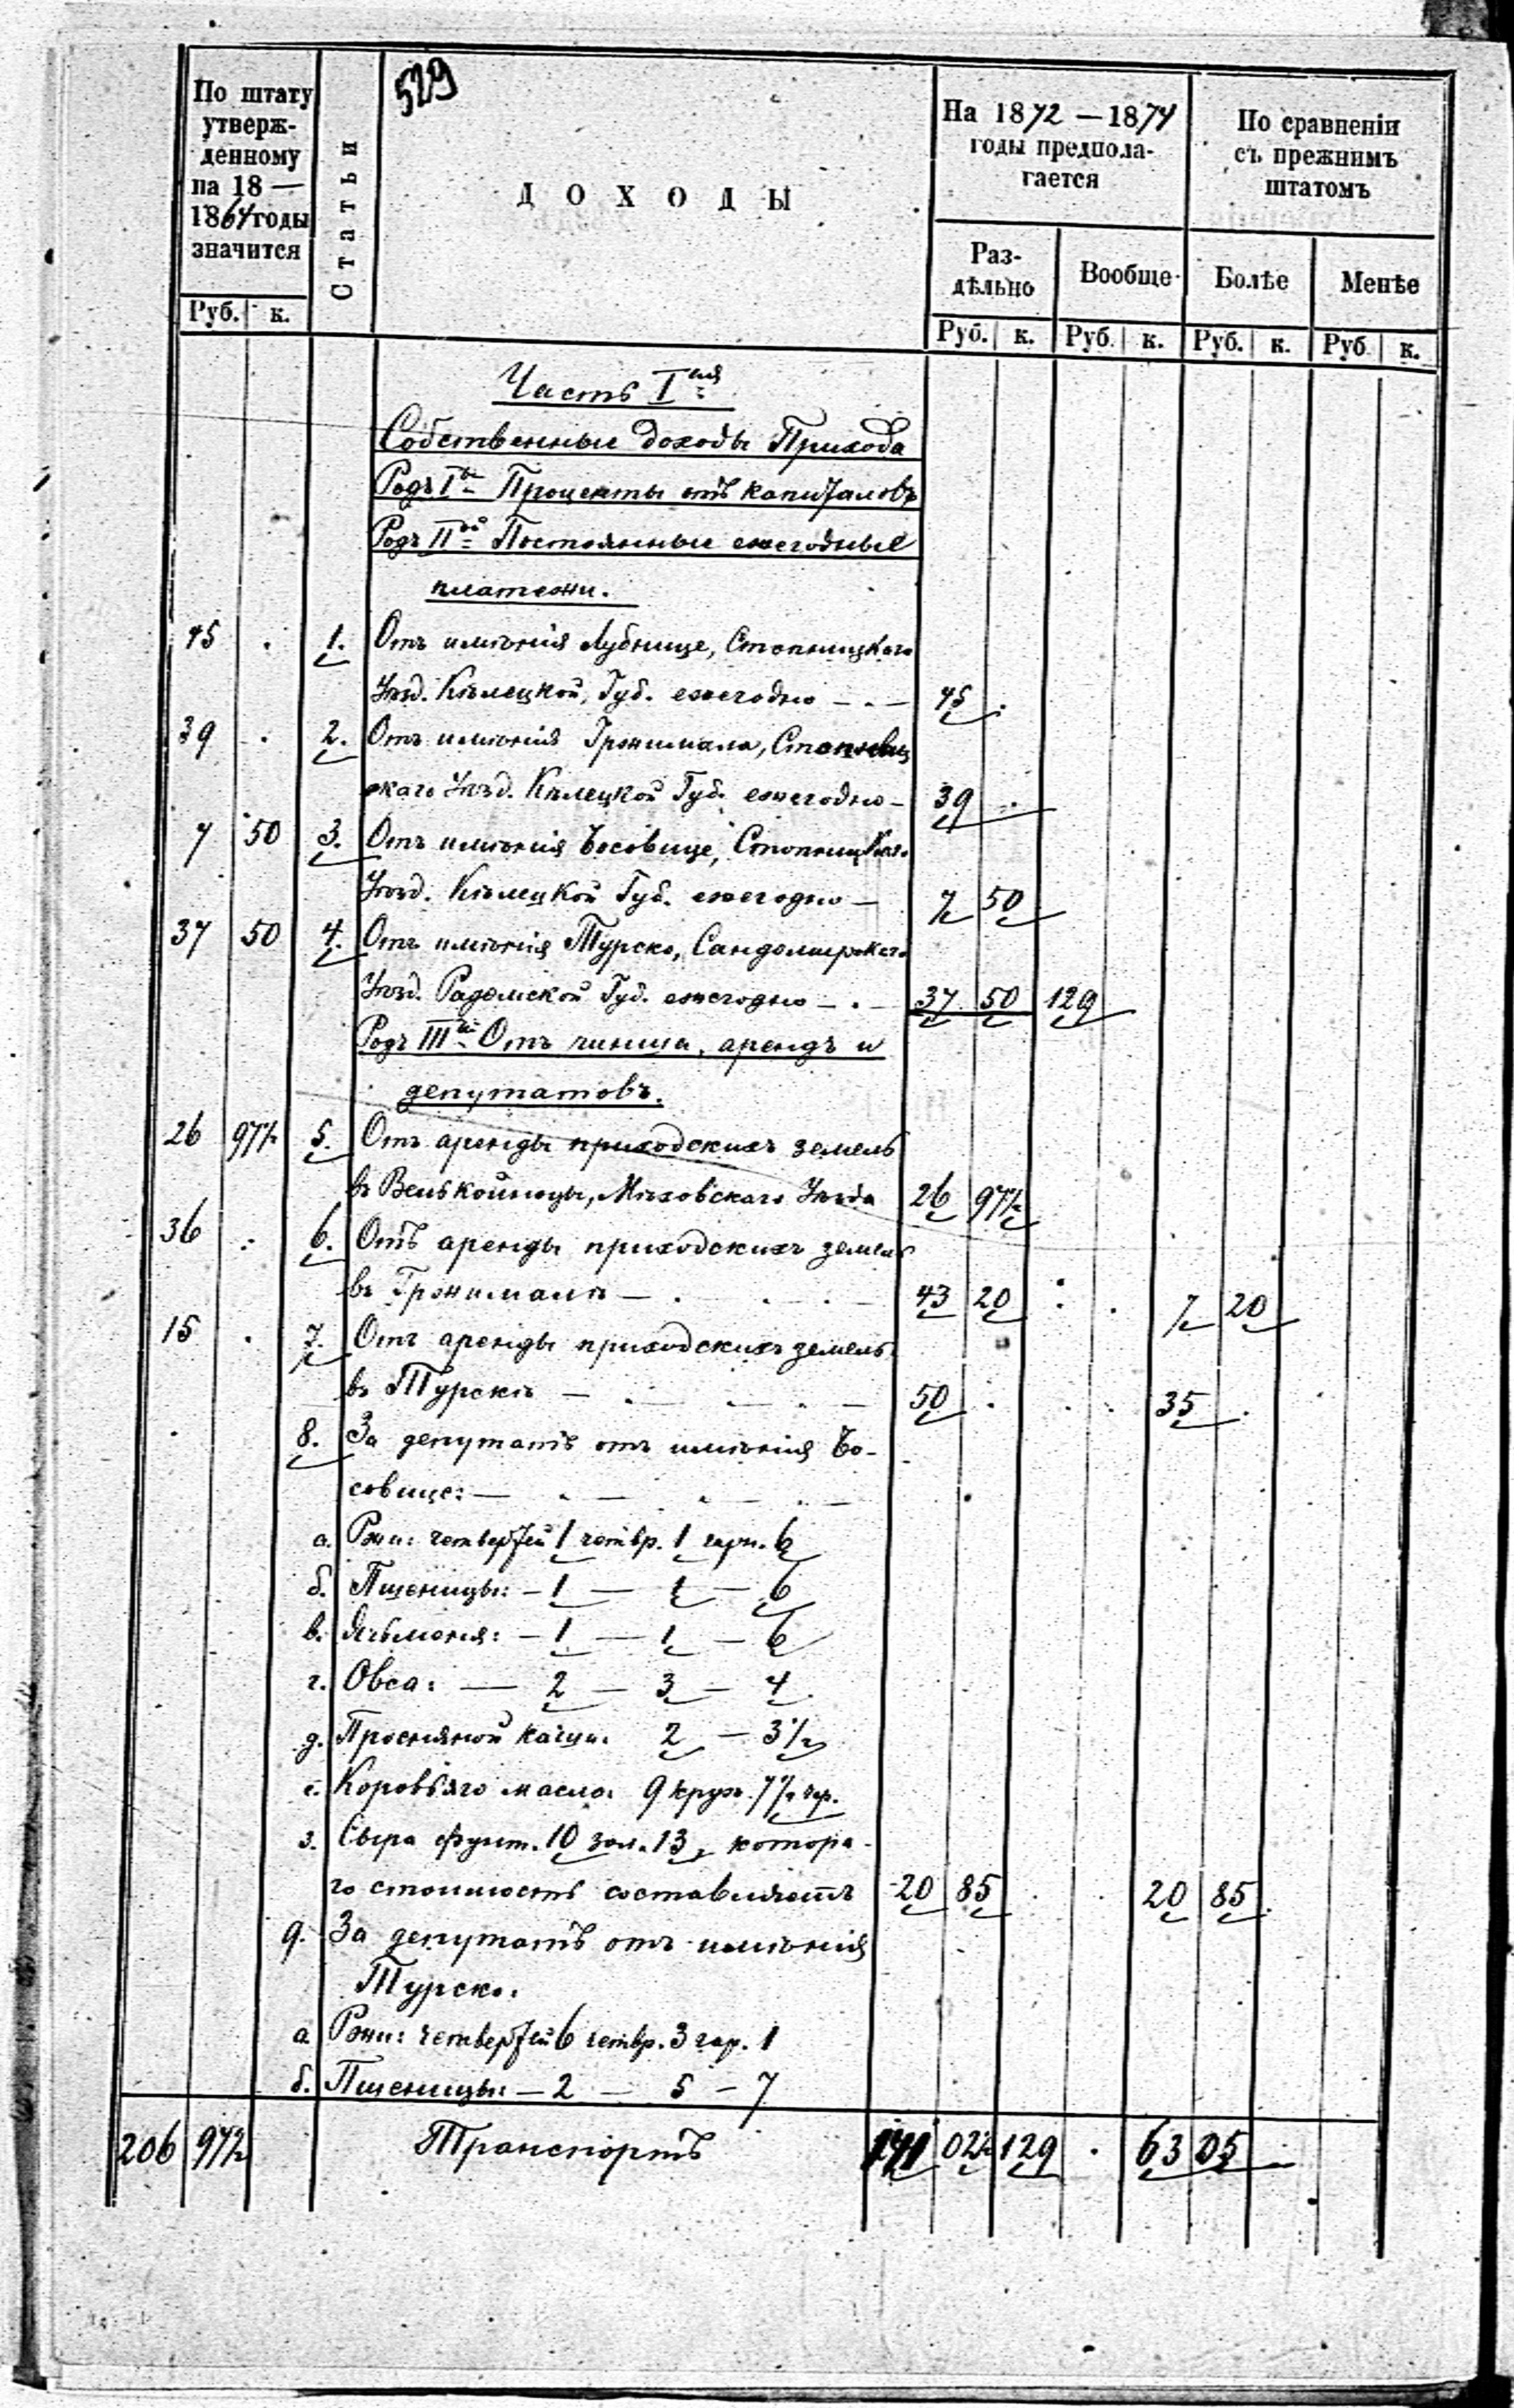 529
По штату
утверж-
денному
на 18 —
1864 годы
значится
Руб. к.
Статьи
ДОХОДЫ
На 1872 — 1874
годы предпола-
гается
Раз-
дѣльно
Вообще
Руб. к. Руб. к.
По сравненію
съ прежнимъ
штатомъ
Болѣе Менѣе
Руб. к. Руб. к.
Часть Iая
Собственные доходы Прихода
Родъ Iй Проценты отъ капиталовъ
Родъ IIой Постоянные ежегодные
платежи.
45 . 1. Отъ имѣнія Лубнице, Стопницкаго
Уѣзд. Кѣлецкой, Губ. ежегодно — . — 45 .
39 . 2. Отъ имѣнія Гржимала, Стопниц
скаго Уѣзд. Кѣлецкой Губ. ежегодно — 39 .
7 50 3. Отъ имѣнія Босовице, Стопницкаго
Уѣзд. Кѣлецкой Губ. ежегодно — 7 50
37 50 4. Отъ имѣнія Турско, Сандомирскаго
Уѣзд. Радомской Губ. ежегодно — . — 37 50 129
Родъ IIIй Отъ чинша, арендъ и
депутатовъ.
26 97½ 5. Отъ аренды приходскихъ земель
въ , Мѣховскаго Уѣзда 26 97½
36 . 6. Отъ аренды приходскихъ земель
въ Гржималѣ — . . . — 43 20 . . 7 20
15 . 7. Отъ аренды приходскихъ земель
въ Турскѣ — . — . — . — 50 . . . 35 .
8. За депутатъ отъ имѣнія Бо-
совице: — . — . — . —
а. Ржи: четвертей 1 четвр. 1 гарн. 6
б. Пшеницы: — 1 — 1 — 6
в. Ячьменя: — 1 — 1 — 6
г. Овса: — 2 — 3 — 4
д. Просняной каши: 2 — 3½
е. Коровьяго масла: 9 круж. 7½ чар.
з. Сыра фунт. 10 зол. 13, котора-
го стоимость составляетъ 20 85 . . 20 85
9. За депутатъ отъ имѣнія
Турско:
а Ржи: четвертей 6 четвр. 3 гар. 1
б. Пшеницы: — 2 — 5 — 7
206 97½ Транспортъ 141 02½ 129 . 63 05